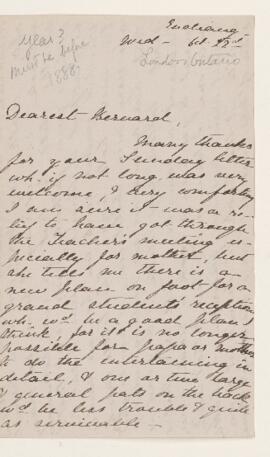 year?
must be before
1888.
Wed – Oct 22nd
London Ontario
Dearest Bernard,
Many thanks
for your Sunday letter
wh. if not long, was very
welcome, & very comforting
I am sure it was a re-
lief to have got through
the Teacher's meeting es-
pecially for mother, but
she tells me there is a
new plan on foot for a
grand students' reception
wh. wd. be a good plan I
think, for it is no longer
possible for papa or mother
to do the entertaining in
detail, & one or two large
& general pats on the back
wd. be less trouble & quite
as serviceable –